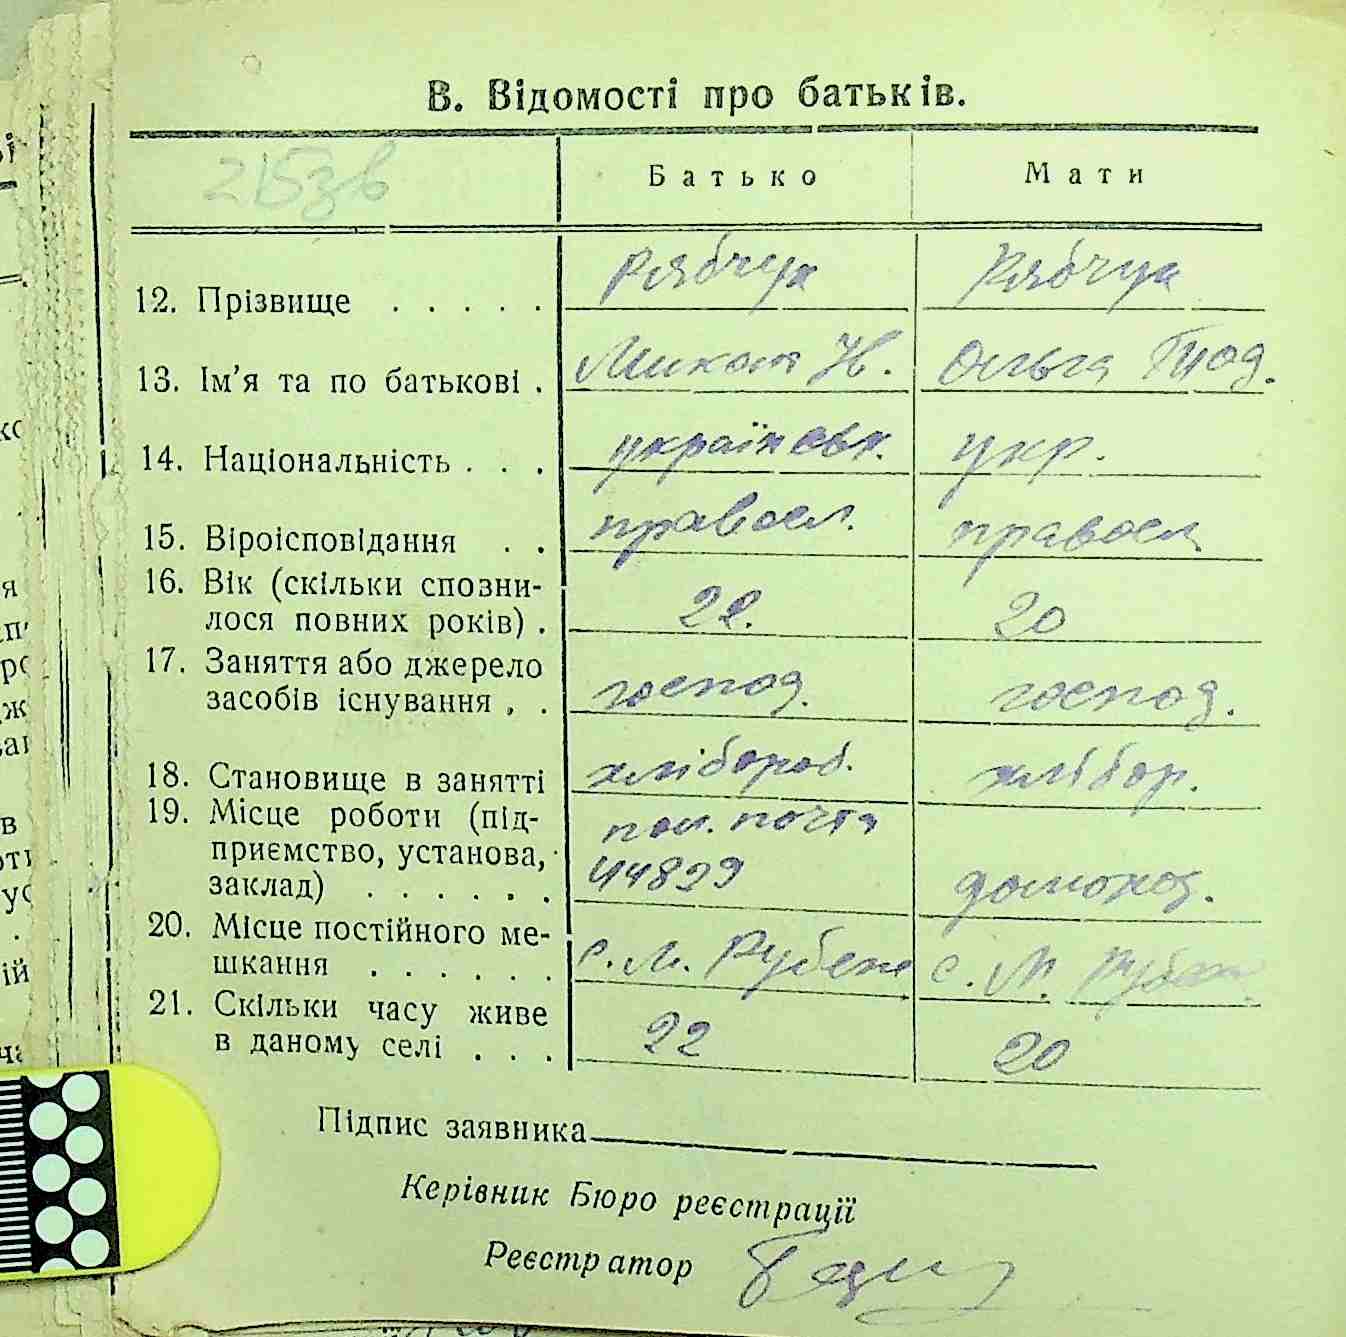 В. Відомості про батьків.
215зв
Батько Мати
12. Прізвище . . . . . Рябчук Рябчук
13. Ім'я та по батькові . Микола Н. Ольга Тод.
14. Національність . . . українськ. укр.
15. Віроісповідання . . правосл. правосл
16. Вік (скільки спозни-
лося повних років) . 22. 20
17. Заняття або джерело
засобів існування . . господ. господ.
18. Становище в занятті хлібороб. хлібор.
19. Місце роботи (під- пол. почта
приємство, установа,
заклад) . . . . . . 44829 домогосп.
20. Місце постійного ме-
шкання . . . . . . с. М. Рубань с. М. Рубань
21. Скільки часу живе
в даному селі . . . 22 20
Підпис заявника
Керівник Бюро реєстрації
Реєстратор